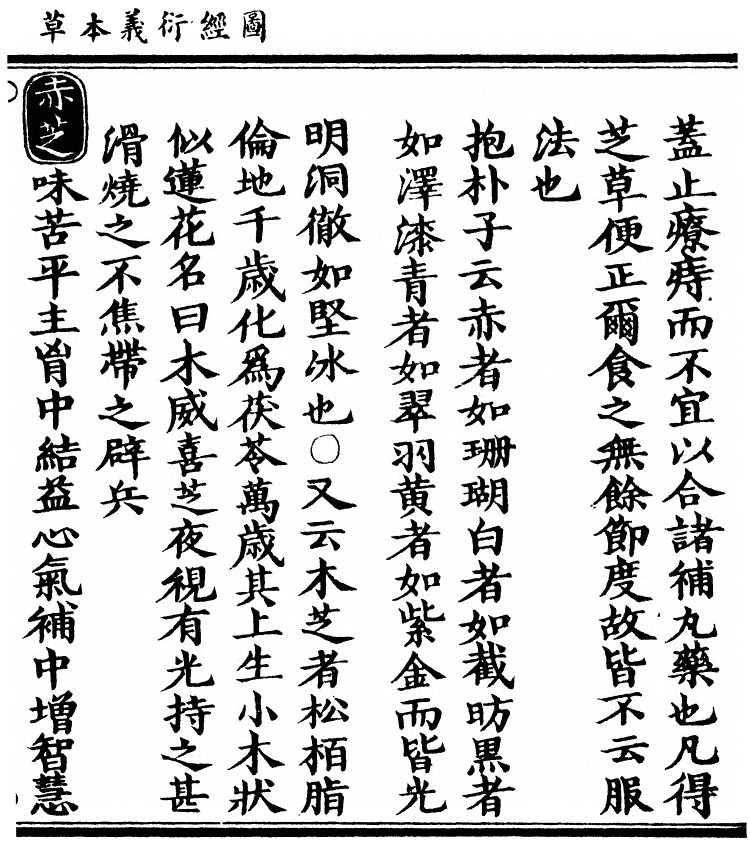 圖經衍義本草
蓋止療痔而不宜以合諸補丸藥也凡得
芝草便正爾食之無餘節度故皆不云服
法也
抱朴子云赤者如珊瑚白者如截昉黒者
如澤漆青者如翠羽黄者如紫金而皆光
明洞徹如堅冰也○又云木芝者松栢脂
倫地千歳化爲茯苓萬歳其上生小木狀
似蓮花名曰木威喜芝夜視有光持之甚
滑燒之不焦帶之辟兵
赤芝味苦平主胷中結益心氣補中增智慧